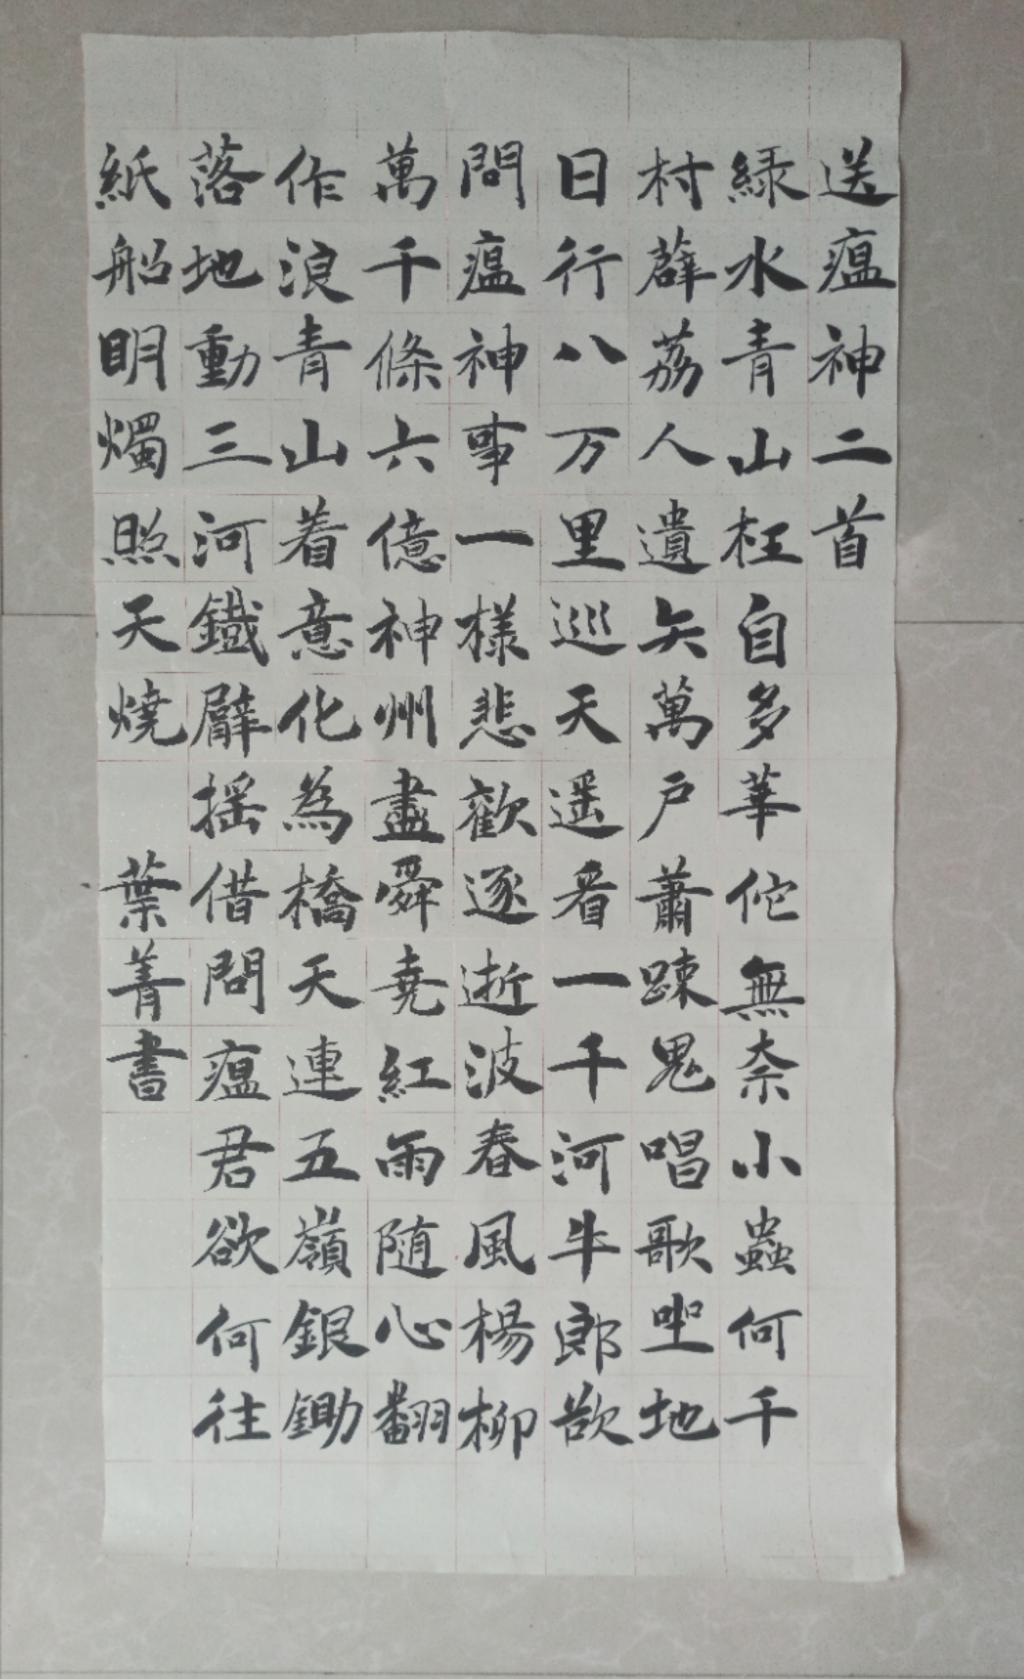 送瘟神二首
綠水青山枉自多華佗無奈小蟲何千
村薜荔人遺矢萬戶蕭踈鬼唱歌坐地
日行八万里巡天遥看一千河牛郎欲
問瘟神事一樣悲歡逐逝波春風楊柳
萬千條六億神州盡舜堯紅雨随心翻
作浪青山着意化為橋天連五嶺銀鋤
落地動三河鐵臂摇借問瘟君欲何往
紙船明燭照天燒 葉菁書